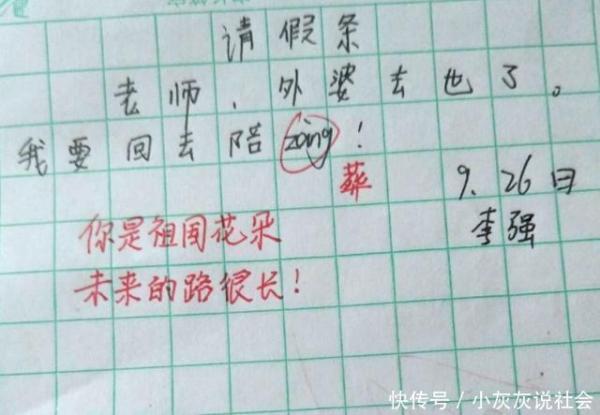 请假条
老师、外婆去也了。
我要回去陪zàng!
葬
9.26日
李强
你是祖国花朵
未来的路很长!
快传号/小灰灰说社会